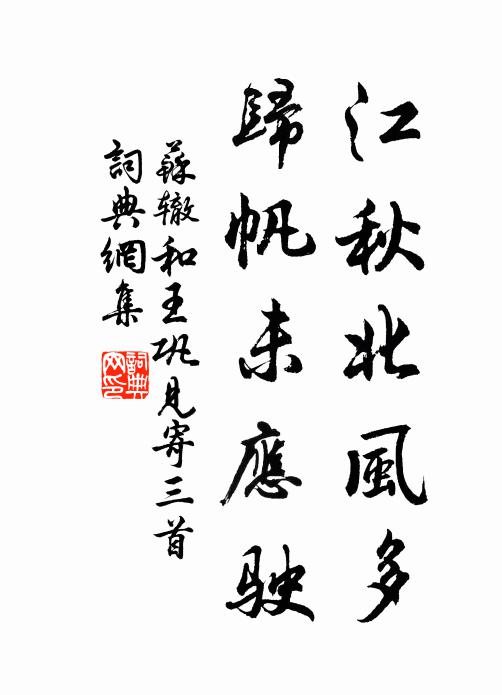 江秋北風多
歸帆未應駛
蘇辙和王巩見寄三首
詞典網集
詞典
网印